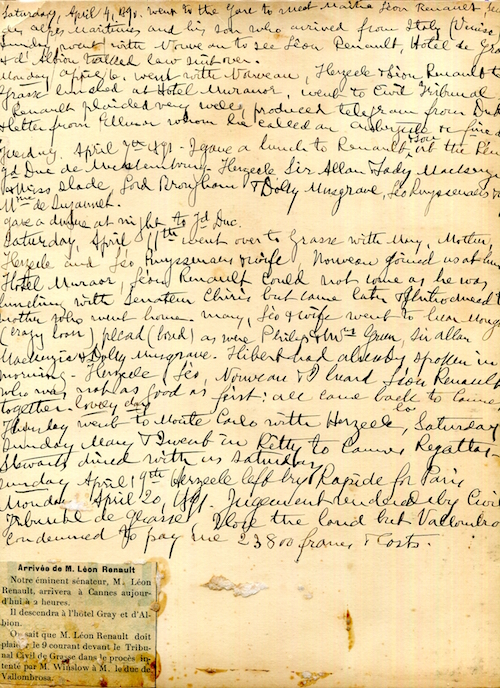 Saturday, April 4, 1891. went to the Gare to meet Maitre Léon Renault,
des alpes maritimes and his son who arrived from Italy (Venise
Sunday went with Nouveau to see Léon Renault, Hotel de Gray
& d'Albion talked law suit over.
Monday went with Nouveau, Herzeele & Léon Renault to
Grasse lunched at Hotel Muraour, went to Civil Tribunal
Renault plaided very well, produced telegram from Duke
& letter from whom he called an
Tuesday. April 7th 1891 - I gave a lunch to Renault, & Son at the
Gd Duc de Mecklembourg, Herzeele Sir Allan & Lady Mackenzie
& Miss Slade, Lord Brougham & Dolly Musgrave, Léo Ruyssenaers &
Mme de
gave a dinner at night to Gd Duc.
Saturday, April 11th went over to Grasse with May, Mother,
Herzeele and Léo Ruyssenaers & wife Nouveau joined us at lunch
Hotel Muraor, Léon Renault could not come as he was
lunching with Senateur Chiris but came later & I introduced to
mother who went home. May, Léo & wife went to hear
(crazy loon) plead (bord) as were Philip & Mrs Green, Sir allan
Mackenzie & Dolly Musgrave. Hibert had already spoken in
morning - Herzeele, Léo, Nouveau & I heard Léon Renault
who was not as good as first: all came back to Cannes
together. lovely day
Thursday went to Monte Carlo with Herzeele, Saturday
Sunday May & I went in Kitty to Cannes Regattas -
Stewarts dined with us Saturday
Sunday April 19th Herzeele left by Rapide for Paris
Monday, April 20, 1891. Jugement rendered by Civil
Tribunal de Grasse I lose the land but Vallombro
condemned to pay me 23800 francs & Costs.
Arrivée de M. Léon Renault
Notre éminent sénateur, M. Léon
Renault, arrivera à Cannes aujour-
d'hui à 2 heures.
Il descendra à l'hôtel Gray et d'Al-
bion.
On sait que M. Léon Renault doit
plaider le 9 courant devant le Tribu-
nal Civil de Grasse dans le procès in-
tenté par M. Winslow à M. le duc de
Vallombrosa.